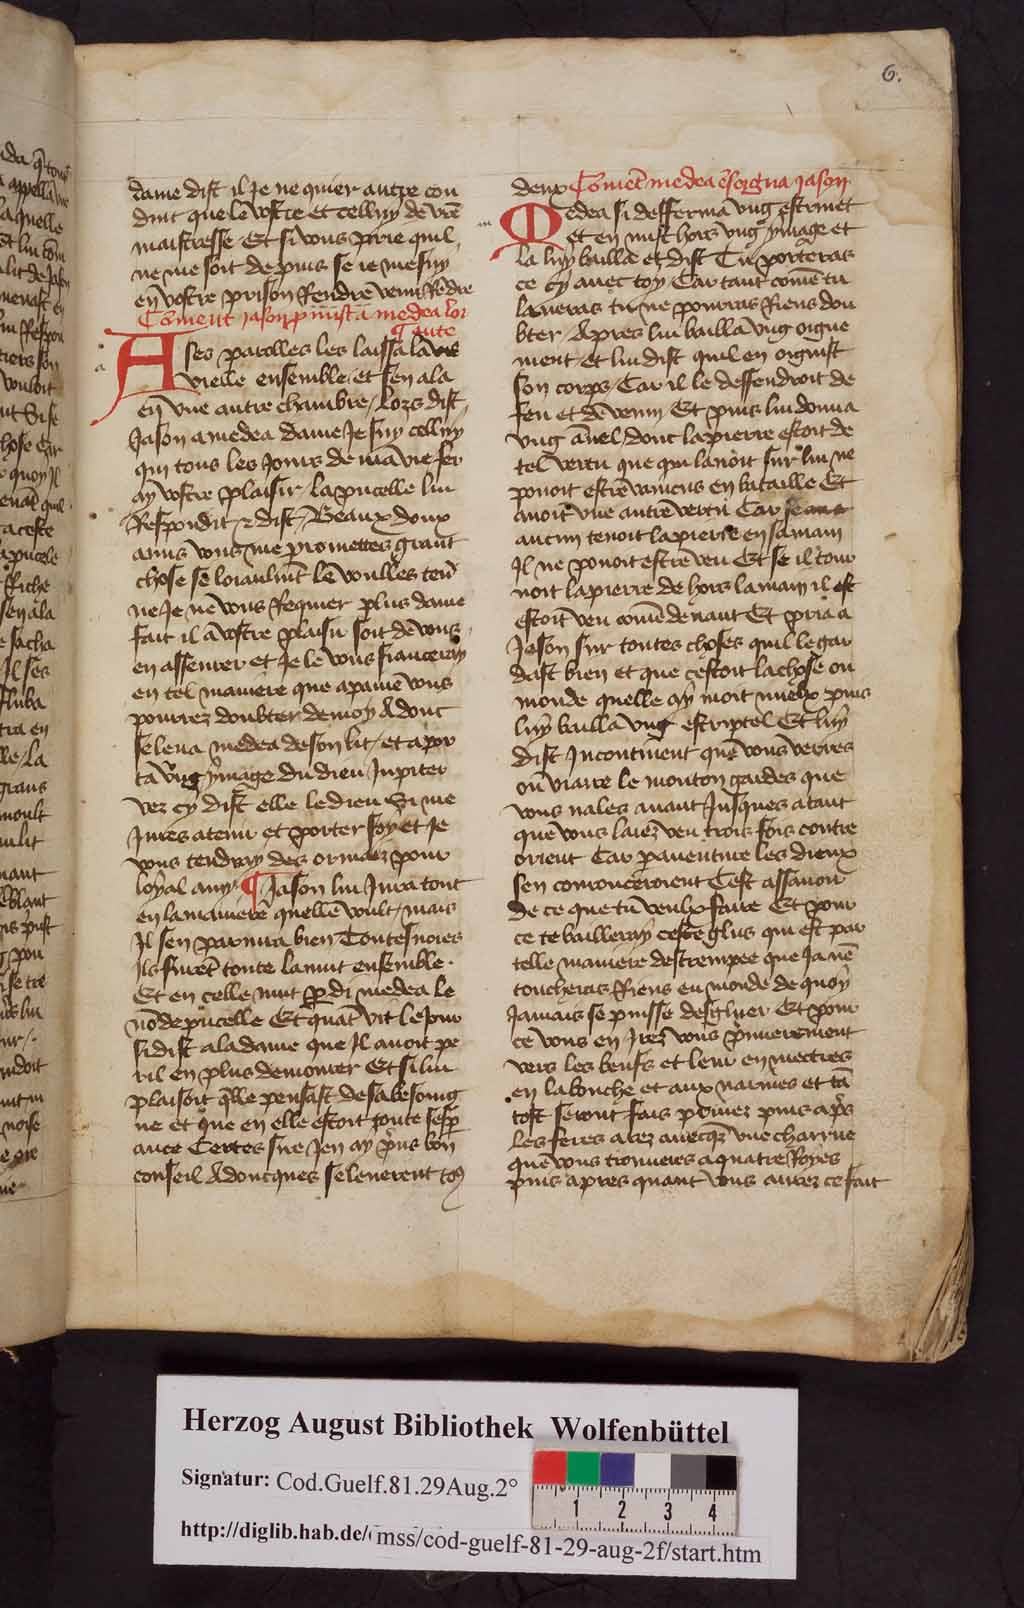 6.
dame dist il Je ne quier autre con
duit que le vostre et celluy de vr̄e
maistresse Et si vous prie quil
ne me soit de puis se ie me suy
en vostre prison Rendre venu Rēdre
Cōment jason pmist a medea lor
¶ aute
A ses parolles les laissa la vie
vielle ensemble / et sen ala
en vne autre chambre / Lors dist
Jason a medea dame Je suy celluy
qui tous les Jours de ma vie fer
ay vostre plaisir / La pucelle lui
Respondit / & dist / Beaux doux
amis vous me promettes grant
chose se loiaulmt̄ le voulles teñ
ne Je ne vous Requier plus dame
fait il a vostre plaisir soit de vous
en asseurer et Je le vous fianceray
en tel maniere que apaine vous
pourrez doubter de moy Adonc
se leua medea de son lit / et apor
ta vng ymage du dieu Jupiter
vez cy dist elle le dieu Si me
Jures a tenir et porter foy et Je
vous tendray des ormaiz pour
loyal amy / ¶ Jason lui Jura tout
en la maniere quelle voult / mais
Il sen pariura bien Toutesuoies
Ils furēt toute la nuit ensemble .
Et en celle nuit p̱di medea le
nō de pucelle Et quāt vit le Jour
si dist a la dame que Il auoit pe
ril en plus demourer Et si lui
plaisoit q̄lle pensast de sa besoing
ne et que en elle estoit toute sesp̱
ance Certes sire Jen ay p̄ns bon
conseil Adoncques se leuerent to9
deux Cōmēt medea ēsorgna jason
Medea si desferma vng escrinet
et en mist hors vng ymage et
la luy bailla et dist Tu porteras
ce cy auec toy Car tant comē tu
laueras tu ne pourras Riens dou
bter Apres lui bailla vng oigne
ment Et lui dist quil en oignist
son corps Car il le deffendroit de
feu et de venin Et puis lui donna
vng anel dont la pierre estoit de
tel vertu que qui lauoit sur lui ne
pouoit estre vaincus en bataille Et
auoit vne autre vertu Car se
aucun tenoit la pierre en sa main
Il ne pouoit estre veu Et se il tour
noit la pierre de hors la main il est
estoit veu comē deuant Et pria a
Jason sur toutes choses quil le gar
dast bien et que cestoit la chose ou
monde quelle aymoit mielx puis
luy bailla vng escriptel Et luy
dist Incontinent que vous verres
ou viaire le mouton gardes que
vous nales auant Jusques a tant
que vous laiez veu trois fois contre
orient Car pauenture les dieux
sen courouceroient Cest assauoir
de ce que tu veulx faire Et pour
ce te bailleray ceste glus qui est par
telle maniere destrempee que Ja nē
toucheras Riens en monde de quoy
Jamais se puisse desgluer Et pour
ce vous en Jrez vous p̄mierement
vers les beufs et leur en mectres
en la bouche et aux narines et tā
tost seront puis ap̄s
les feres arez auecqz vne charrue
que vous trouueres a quatre Royes
puis apres quant vous aurez ce fait
Herzog August Bibliothek Wolfenbüttel
Signatur: Cod.Guelf.81.29Aug.2°
1 2 3 4
http://diglib.hab.de/mss/cod-guelf-81-29-aug-2f/start.htm